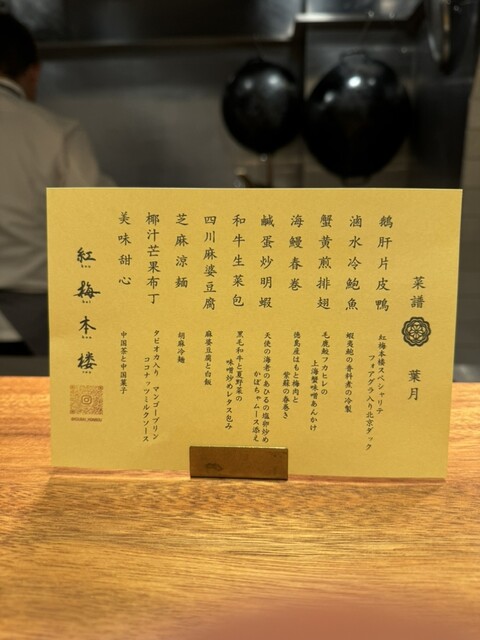 菜譜 葉月
鵝肝片皮鴨
紅梅本楼スペシャリテ
フォアグラ入り北京ダック
滷水冷鮑魚
蝦夷鮑の香料煮の冷製
蟹黄煎排翅
毛鹿鮫フカヒレの
上海蟹味噌あんかけ
海鰻春巻
徳島産はもと梅肉と
紫蘇の春巻き
鹹蛋炒明蝦
天使の海老のあひるの塩卵炒め
かぼちゃムース添え
和牛生菜包
黒毛和牛と夏野菜の
味噌炒めレタス包み
四川麻婆豆腐
麻婆豆腐と白飯
芝麻涼麺
胡麻冷麺
椰汁芒果布丁
タピオカ入り マンゴープリン
ココナッツミルクソース
美味甜心
中国茶と中国菓子
紅梅本楼